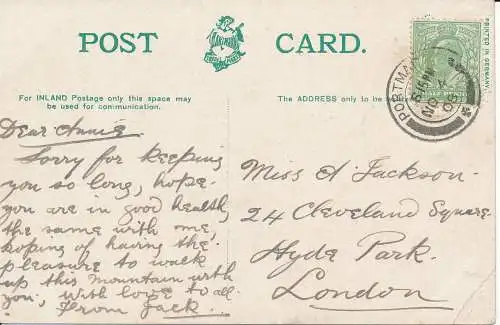 POST CARD.
PRINTED IN GERMANY
HALFPENNY
For INLAND Postage only this space may
be used for communication.
The ADDRESS only to be
PORTMA
8.15 PM
NO
08
Dear Annie
Sorry for keeping
you so long, hope
you are in good health,
the same with me,
hoping of having the
pleasure to walk
up this mountain with
you, with love to all.
From Jack.
Miss A. Jackson.
24 Cleveland Square
Hyde Park.
London